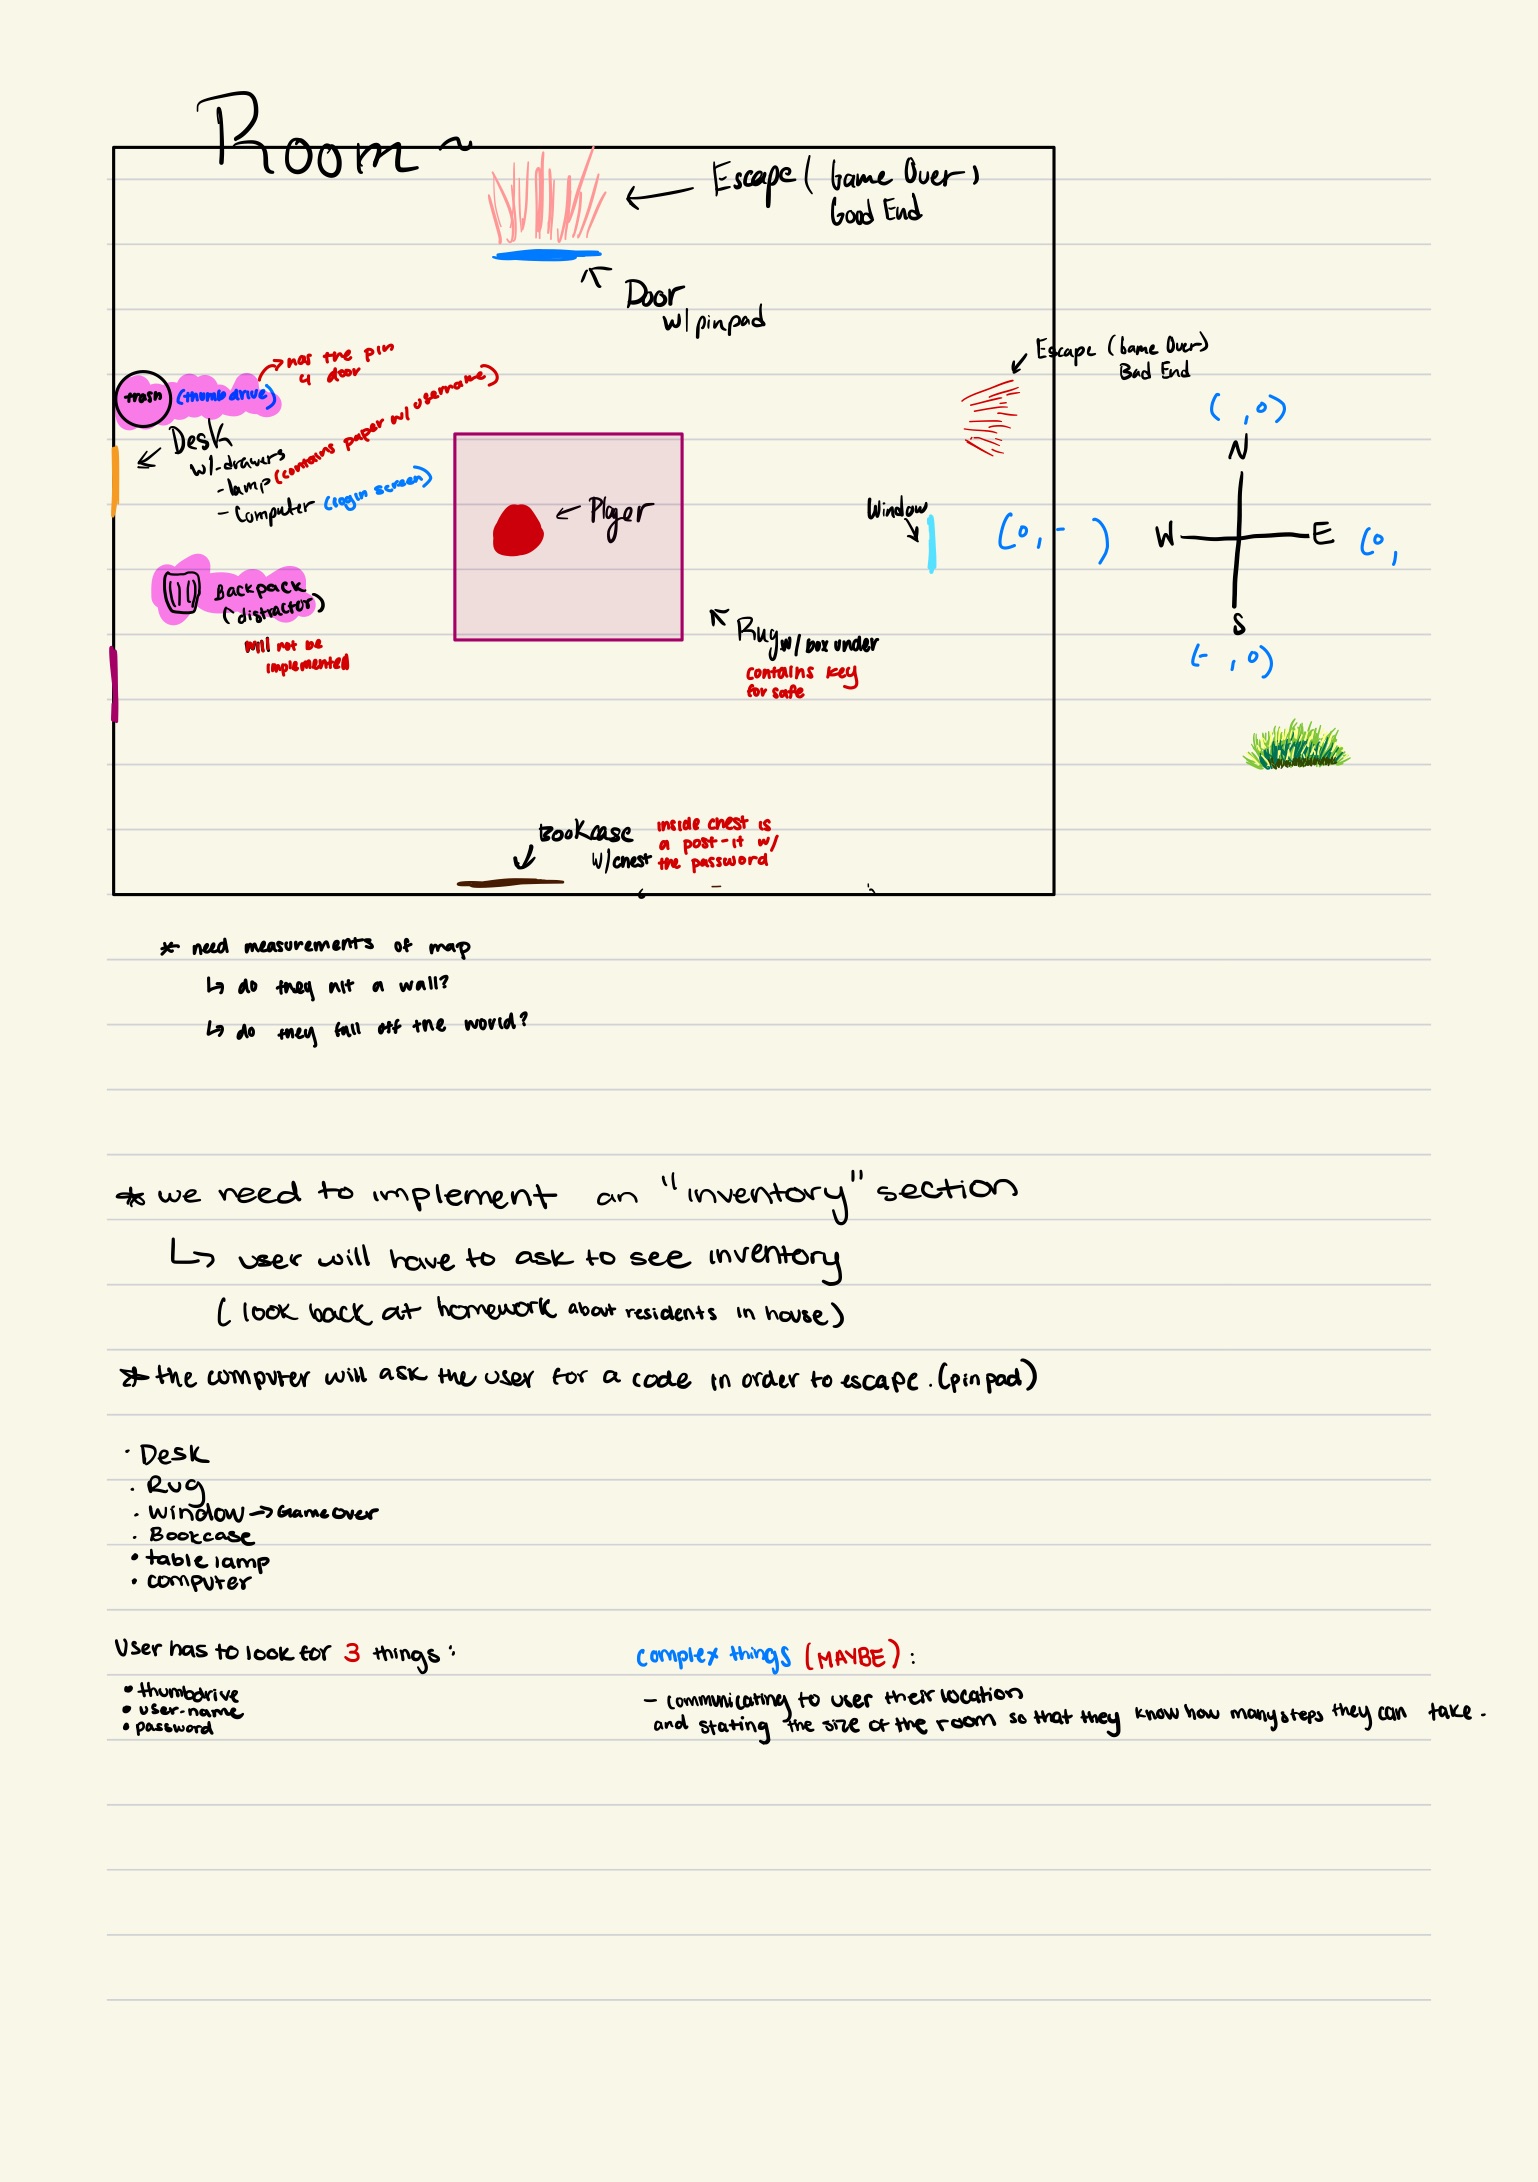 Room ~
Escape ( Game Over )
Good End
Door
w/ pinpad
has the pin
4 door
trash (thumb drive)
Escape (Game Over)
Bad End
Desk
w/-drawers
- lamp (contains paper w/ username)
- Computer (login screen)
Player
Window
( ,0)
N
(0, - )
W
E
(0,
S
(- ,0)
Backpack
(distractor)
will not be
implemented
Rug w/ box under
contains key
for safe
Bookcase
w/chest
inside chest is
a post-it w/
the password
* need measurements of map
↳ do they hit a wall?
↳ do they fall off the world?
* we need to implement an "inventory" section
↳ user will have to ask to see inventory
(look back at homework about residents in house)
* the computer will ask the user for a code in order to escape. (pinpad)
· Desk
· Rug
· Window → Game Over
· Bookcase
• table lamp
• computer
User has to look for 3 things:
• thumbdrive
• user-name
• password
complex things (MAYBE) :
- communicating to user their location
and stating the size of the room so that they know how many steps they can take.